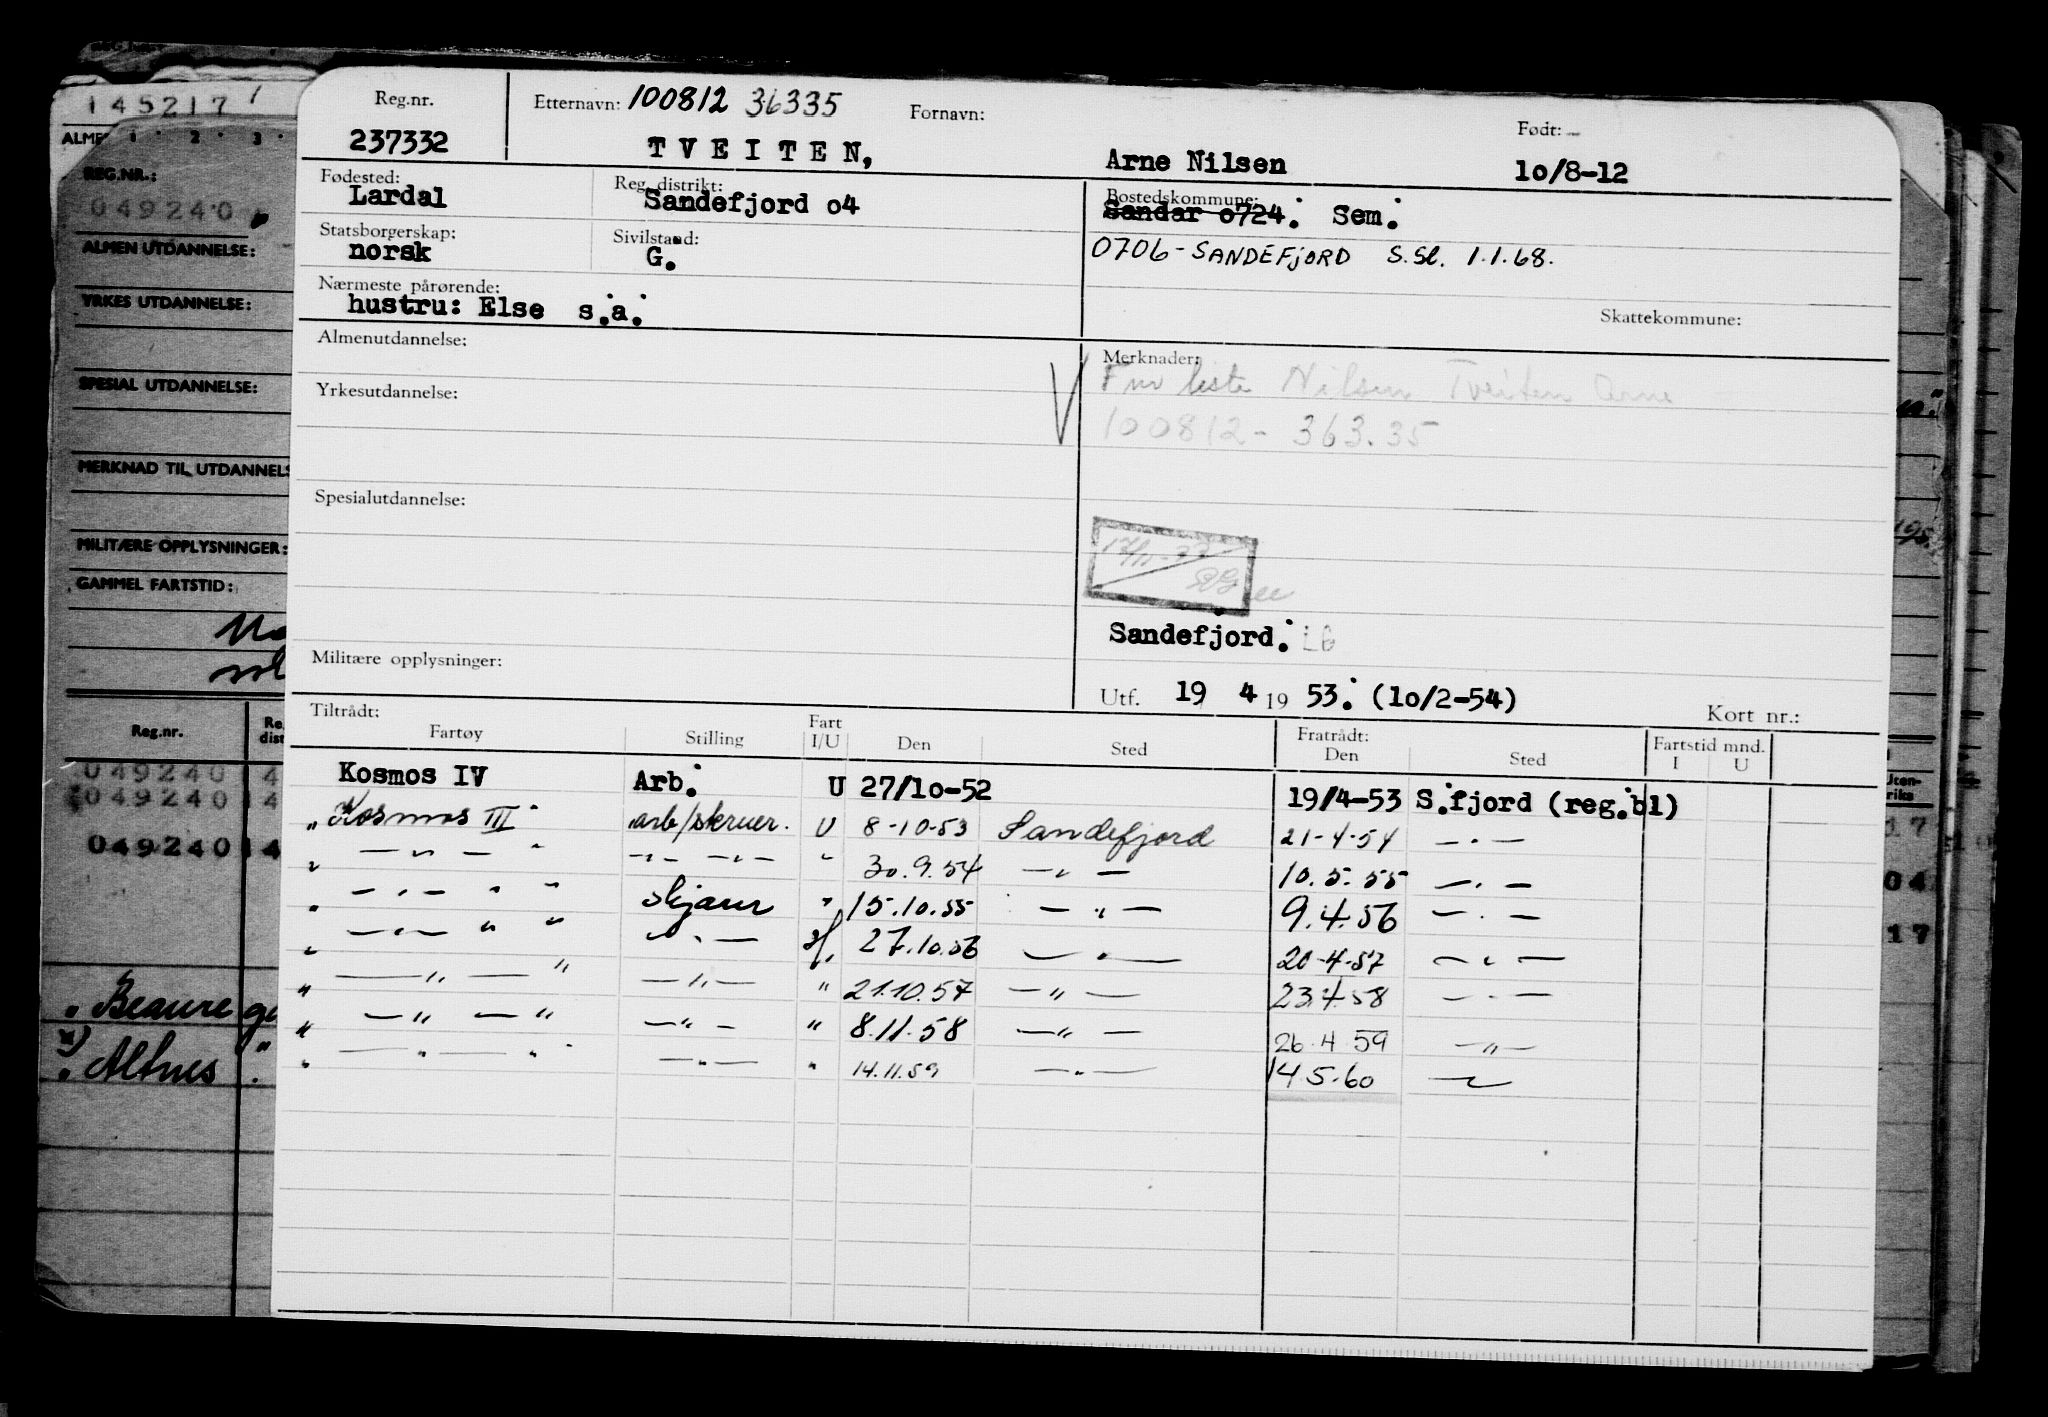 145217
ALME 1 2 3
REG.NR.:
049240
ALMEN UTDANNELSE:
YRKES UTDANNELSE:
SPESIAL UTDANNELSE:
MERKNAD TIL UTDANNELS
MILITÆRE OPPLYSNINGER:
GAMMEL FARTSTID:
Reg.nr. Re. dist
049240 4
049240 4
049240 4
Beaure ge
x) Altnes "
Reg.nr. Etternavn: 100812 36335 Fornavn: Født:
237332 TVEITEN, Arne Nilsen 10/8-12
Fødested: Reg. distrikt: Bostedskommune:
Lardal Sandefjord o4 Sandar o724. Sem.
Statsborgerskap: Sivilstand:
norsk G. 0706-SANDEFJORD S.Sl. 1.1.68.
Nærmeste pårørende:
hustru: Else s.a. Skattekommune:
Almenutdannelse: Merknader:
Fnr liste Nilsen Tveiten Arne
Yrkesutdannelse:
100812- 363.35
Spesialutdannelse:
Sandefjord. LG
Militære opplysninger:
Utf. 19 4 19 53. (10/2-54)
Kort nr.:
Tiltrådt: Fratrådt: Fartstid mnd.
Fartøy Stilling Fart I/U Den Sted Den Sted I U
Kosmos IV Arb. U 27/10-52 19/4-53 S.fjord (reg.bl)
" Kosmos III arb/skruer. U 8-10-53 Sandefjord 21-4-54 — " —
" — " — " — " — — " — " 30.9.54 — " — 10.5.55 — " —
" — " — " " skjærer " 15.10.55 — " — 9.4.56 — " —
" — " — " " " — " — 27.10.56 — " — 20-4-57 — " —
" — " — " — " — " 21.10.57 — " — 23.4.58 — " —
" — " — " — " — " 8.11.58 — " — 26.4.59 — " —
" — " — " — " — " 14.11.59 — " — 14.5.60 —
Uten-
riks
17
04
17